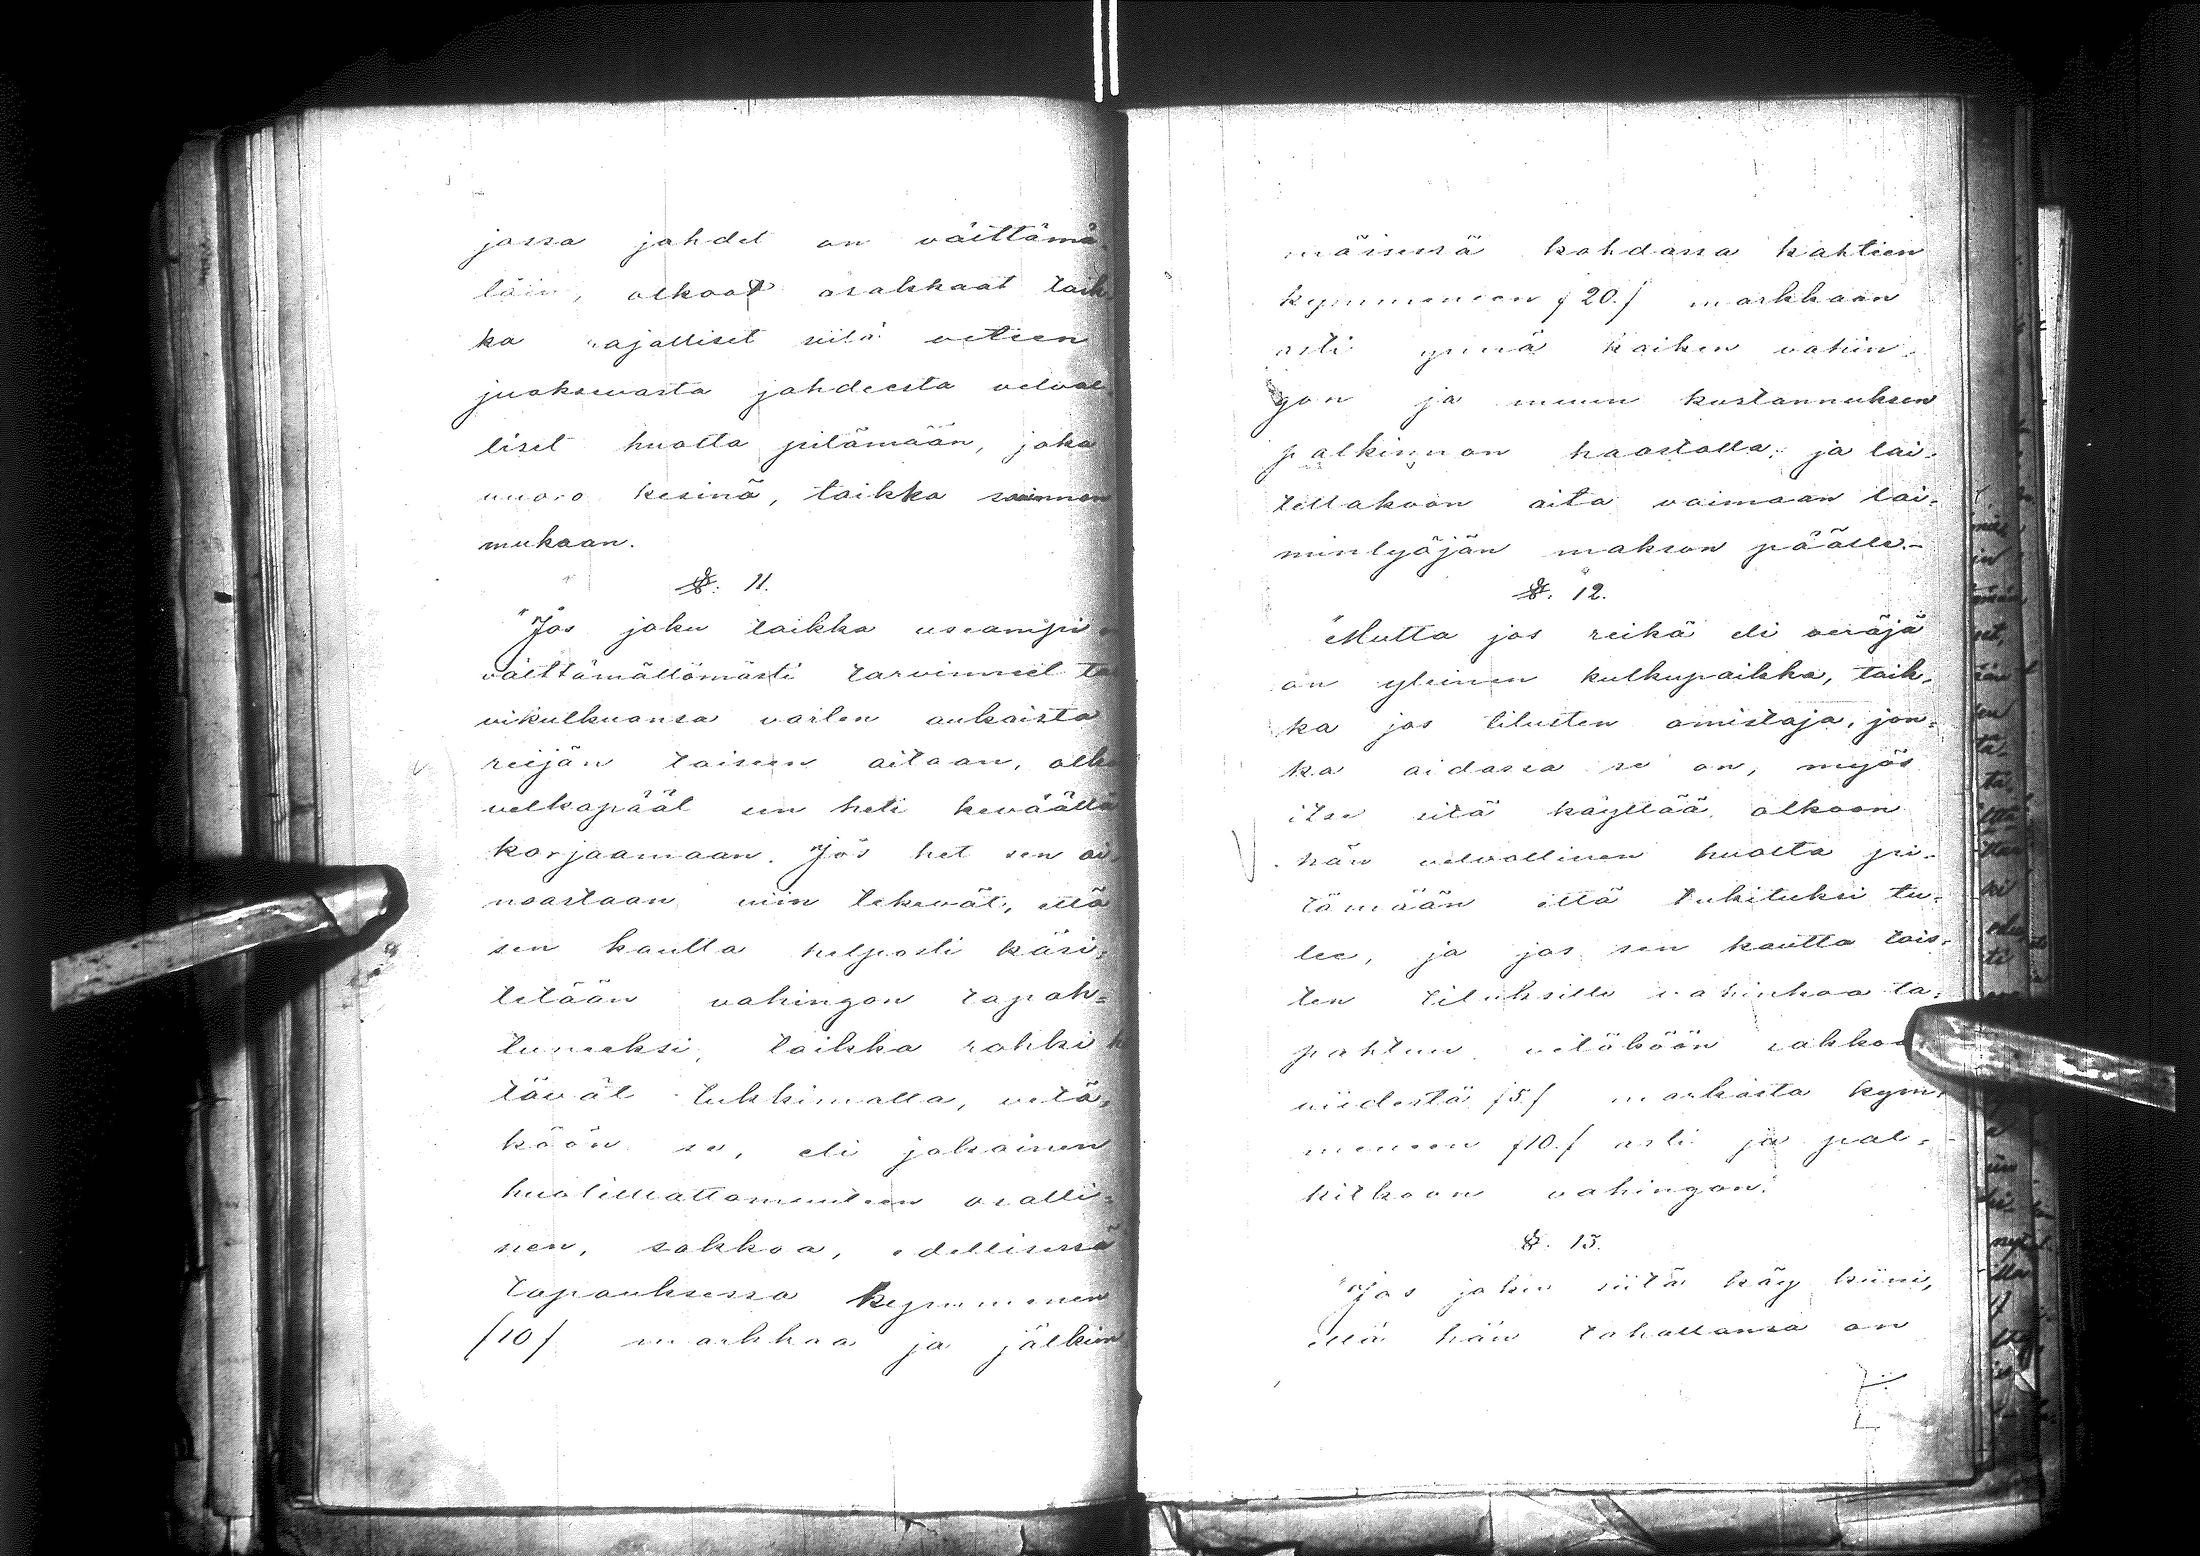 jossa johdet on väittämä
läin, olkoot osakkaat taik-
ka rajalliset siitä vetien
juoksevasta johdeesta velvol
liset huolta pitämään, joka
vuoro kesinä, taikka sovinnon
mukaan.
§: 11.
"Jos joku taikka useampi
välttämättömästi tarvinneet ta
vikulkuansa varten aukaista
reijän toiseen aitaan, olk
velkapäät sen heti keväällä
korjaamaan. Jos het sen ai
noastaan niin tekevät, että
sen kautta helposti käsi-
tetään vahingon tapah-
tuneeksi, taikka rohki
tävät tukkimatta, vetä-
köön se, eli jokainen
huolimattomuuteen osalli-
nen, sakkoa, edellisessä
tapauksessa kymmenen
/10/ markkaa ja jälkim
mäisessä kohdassa kahtien
kymmeneen /20./ markkaan
asti ynnä kaiken vahin-
gon ja muun kustannuksen
palkinnon haastolla, ja lai-
tettakoon aita voimaan lai-
minlyöjän makson päälle.-
§. 12.
"Mutta jos reikä eli veräjä
on yleinen kulkupaikka, taik-
ka jos tilusten omistaja, jon-
ka aidassa se on, myös
itse sitä käyttää, olkoon
hän velvollinen huolta pi-
tämään että tukituksi tu-
lee, ja jos sen kautta tois-
ten tiluksille vahinkoa ta-
pahtuu vetäköön sakkoa
viidestä /5./ markasta kym-
meneen /10./ asti ja pal-
kitkoon vahingon.
§. 13.
"Jos joku siitä käy kiini,
että hän tahallansa on